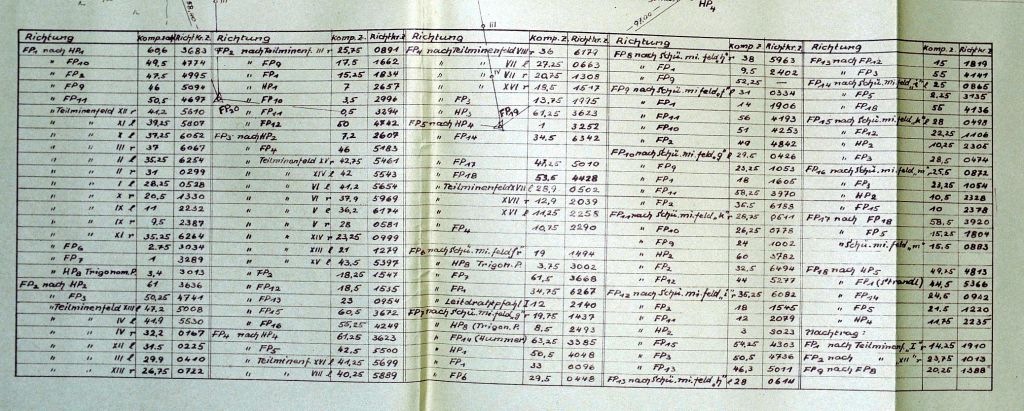 Richtung Komp.zahl Richtkr.Z.
FP1 nach HP1 60,6 3683
" FP10 49,5 4774
" FP2 47,5 4995
" FP9 46 5094
" FP11 50,5 4697
" Teilminenfeld XII r 41,2 5610
" " II l 39,25 5807
" " X l 37,25 6052
" " III r 37 6067
" " II l 35,25 6254
" " II r 31 0299
" " I l 28,25 0528
" " X r 20,5 1330
" " IX l 11 2232
" " IX r 9,5 2387
" " XI r 35,25 6264
" FP6 2,75 3034
" FP7 1 3289
" HP8 Trigonom.P. 3,4 3013
FP2 nach HP2 61 3636
" FP3 50,25 4741
" Teilminenfeld XIII l 47,2 5008
" " IV l 41,9 5530
" " IV r 32,2 0167
" " III r 31,5 0225
" " III l 29,9 0410
" " XIII r 26,75 0722
Richtung
FP2 nach Teilminenf. III r 25,75 0891
" FP9 17,5 1662
" FP1 15,25 1834
" HP1 7 2657
" FP10 3,5 2996
" FP11 0,5 3294
" FP12 50 4742
FP3 nach HP2 7,2 2607
" FP4 46 5183
" Teilminenfeld XI r 42,75 5461
" " XIV l 42 5543
" " VI l 41,2 5654
" " VI r 37,9 5969
" " V l 36,2 6174
" " V r 28 0581
" " XIV r 23,25 0999
" " XIII l 21 1279
" " XV l 43,5 5397
" FP2 18,25 1547
" FP12 18,5 1535
" FP13 23 0954
" FP15 60,5 3672
" FP16 55,25 4249
FP4 nach HP4 61,25 3623
" FP5 42,5 5500
" Teilminenf. XVI l 41,25 5699
" " VIII l 40,25 5889
Richtung Komp. Z. Richtkr. Z.
FP4 nach Teilminenfeld VIII r 36 6179
" " VII l 27,25 0663
" " VII r 20,75 1308
" " XVI r 19,5 1517
" FP3 13,75 1975
" HP3 61,25 3623
FP5 nach HP4 1 3252
" FP14 34,5 6342
" FP17 47,25 5010
" FP18 53,5 4428
" Teilminenfeld XVII l 28,9 0502
" " XVII r 12,9 2039
" " XVI l 11,25 2258
" FP4 10,75 2290
FP6 nach Schü. mi. feld „f" r 19 1494
" HP8 Trigon. P. 3,75 3002
" FP7 61,5 3668
" FP1 34,75 6267
" Leitdrahtpfahl I 12 2140
FP7 nach Schü. mi. feld „g" r 19,75 1437
" HP8 (Trigon. P. 8,5 2493
" FP14 (Hummer) 63,25 3385
" HP1 50,5 4048
" FP1 33 0096
" FP6 29,5 0448
Richtung Komp. Z. Richtkr. Z.
FP8 nach Schü. mi. feld „h" r 38 5963
" FP1 9,5 2402
FP9 nach Schü. mi. feld „f" l 31 0334
" FP1 14 1906
" FP11 56 4193
" FP10 51 4253
" FP2 49 4842
FP10 nach Schü. mi. feld „g" l 29,5 0426
" FP9 23,25 1053
" FP1 18 1605
" FP11 58,25 3970
" FP2 36,5 6183
FP11 nach Schü. mi. feld „h" r 28,75 0611
" FP10 26,25 0778
" FP9 24 1002
" HP2 60 3782
" FP2 32,5 6494
" FP12 44 5277
FP12 nach Schü. mi. feld „i" r 35,25 6082
" FP2 18 1545
" FP11 12 2079
" HP2 3 3023
" FP15 54,25 4303
" FP3 50,5 4736
" FP13 46,3 5011
FP13 nach Schü. mi. feld „h" l 28 0614
Richtung Komp. Z. Richtkr. Z.
FP13 nach FP12 15 1819
" FP3 55 4141
FP14 nach Schü. mi. feld „l" l 25 0865
" FP5 2,25 3135
" FP18 55 4136
FP15 nach Schü. mi. feld „k" l 28 0498
" FP12 22,25 1106
" HP2 10,25 2305
" FP3 28,5 0474
FP16 nach Schü. mi. feld „m" r 25,5 0872
" FP3 23,25 1054
" HP2 10,5 2328
" FP15 10 2378
FP17 nach FP18 58,5 3920
" FP5 15,25 1804
" Schü. mi. feld „m" 15,5 0883
FP18 nach HP5 49,25 4813
" FP1 (Strandl) 44,5 5366
" FP14 24,5 0902
" FP5 21,5 1220
" HP4 11,75 2235
Nachtrag:
FP1 nach Teilminenf. „I" r 14,25 1910
FP2 nach " „XII" r 23,75 1013
FP9 nach FP8 20,25 1388
FP30
FP19
III
IV
HP4